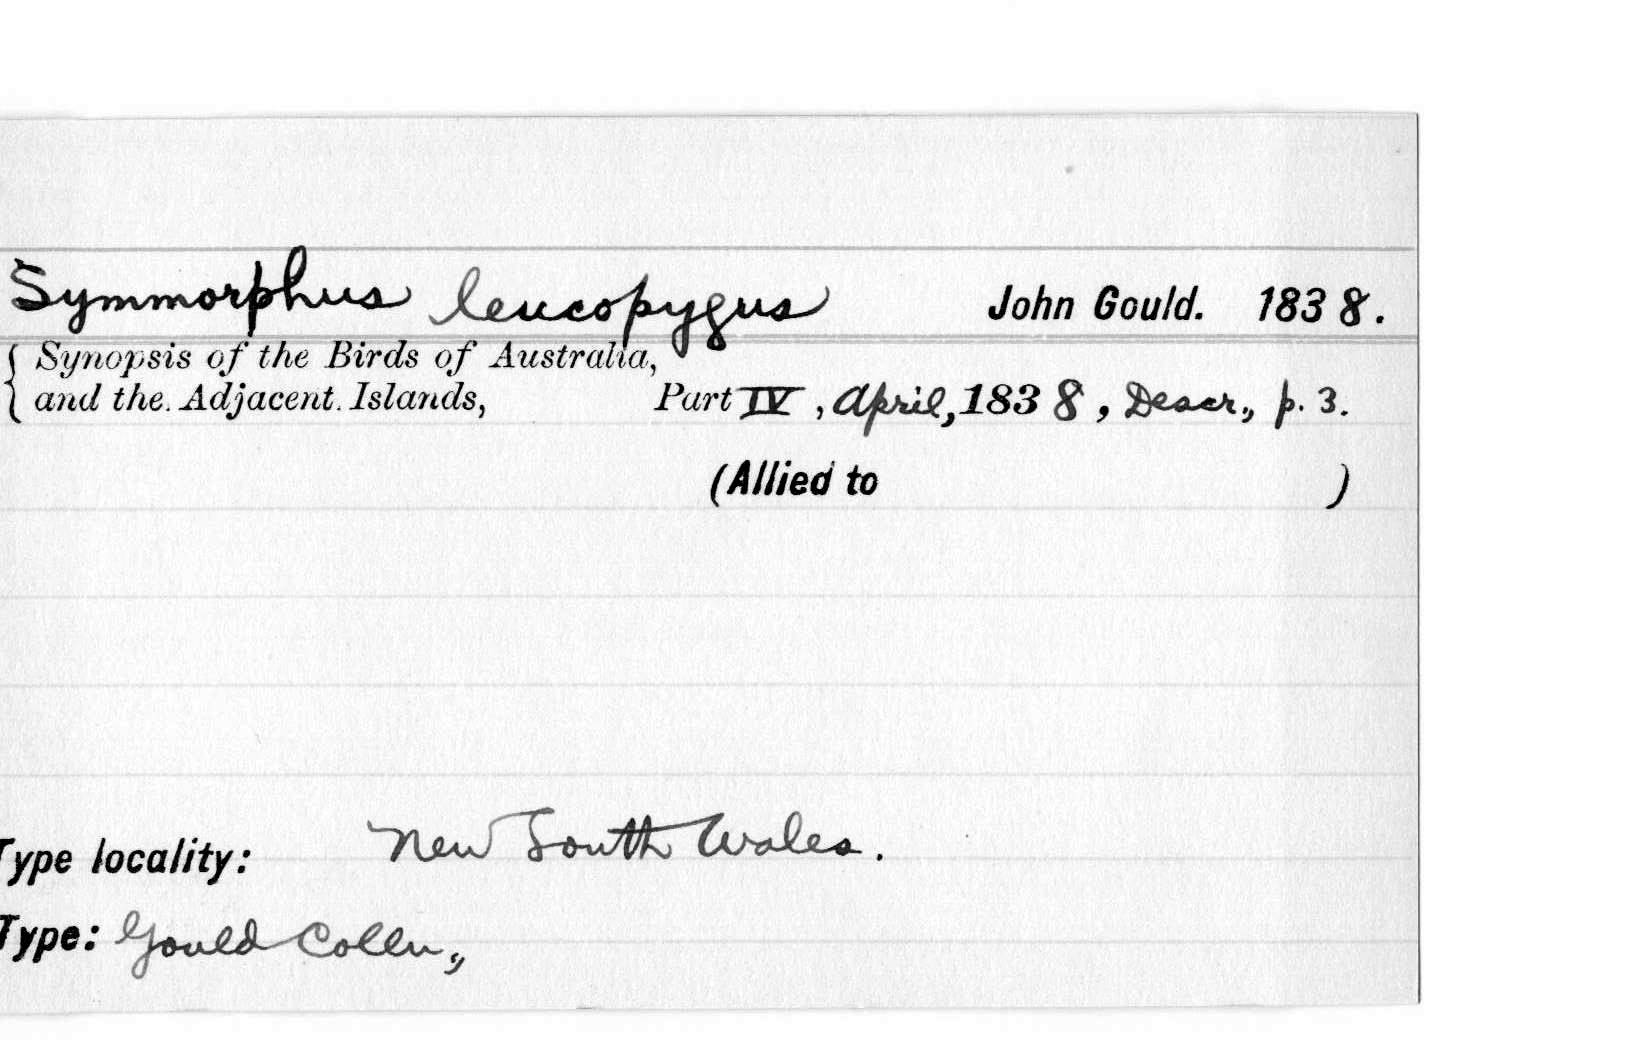 Symmorphus leucopygus John Gould. 1838.
{ Synopsis of the Birds of Australia,
and the Adjacent Islands, Part IV, April, 1838, Descr., p. 3.
(Allied to )
Type locality: New South Wales.
Type: Gould Colln.,